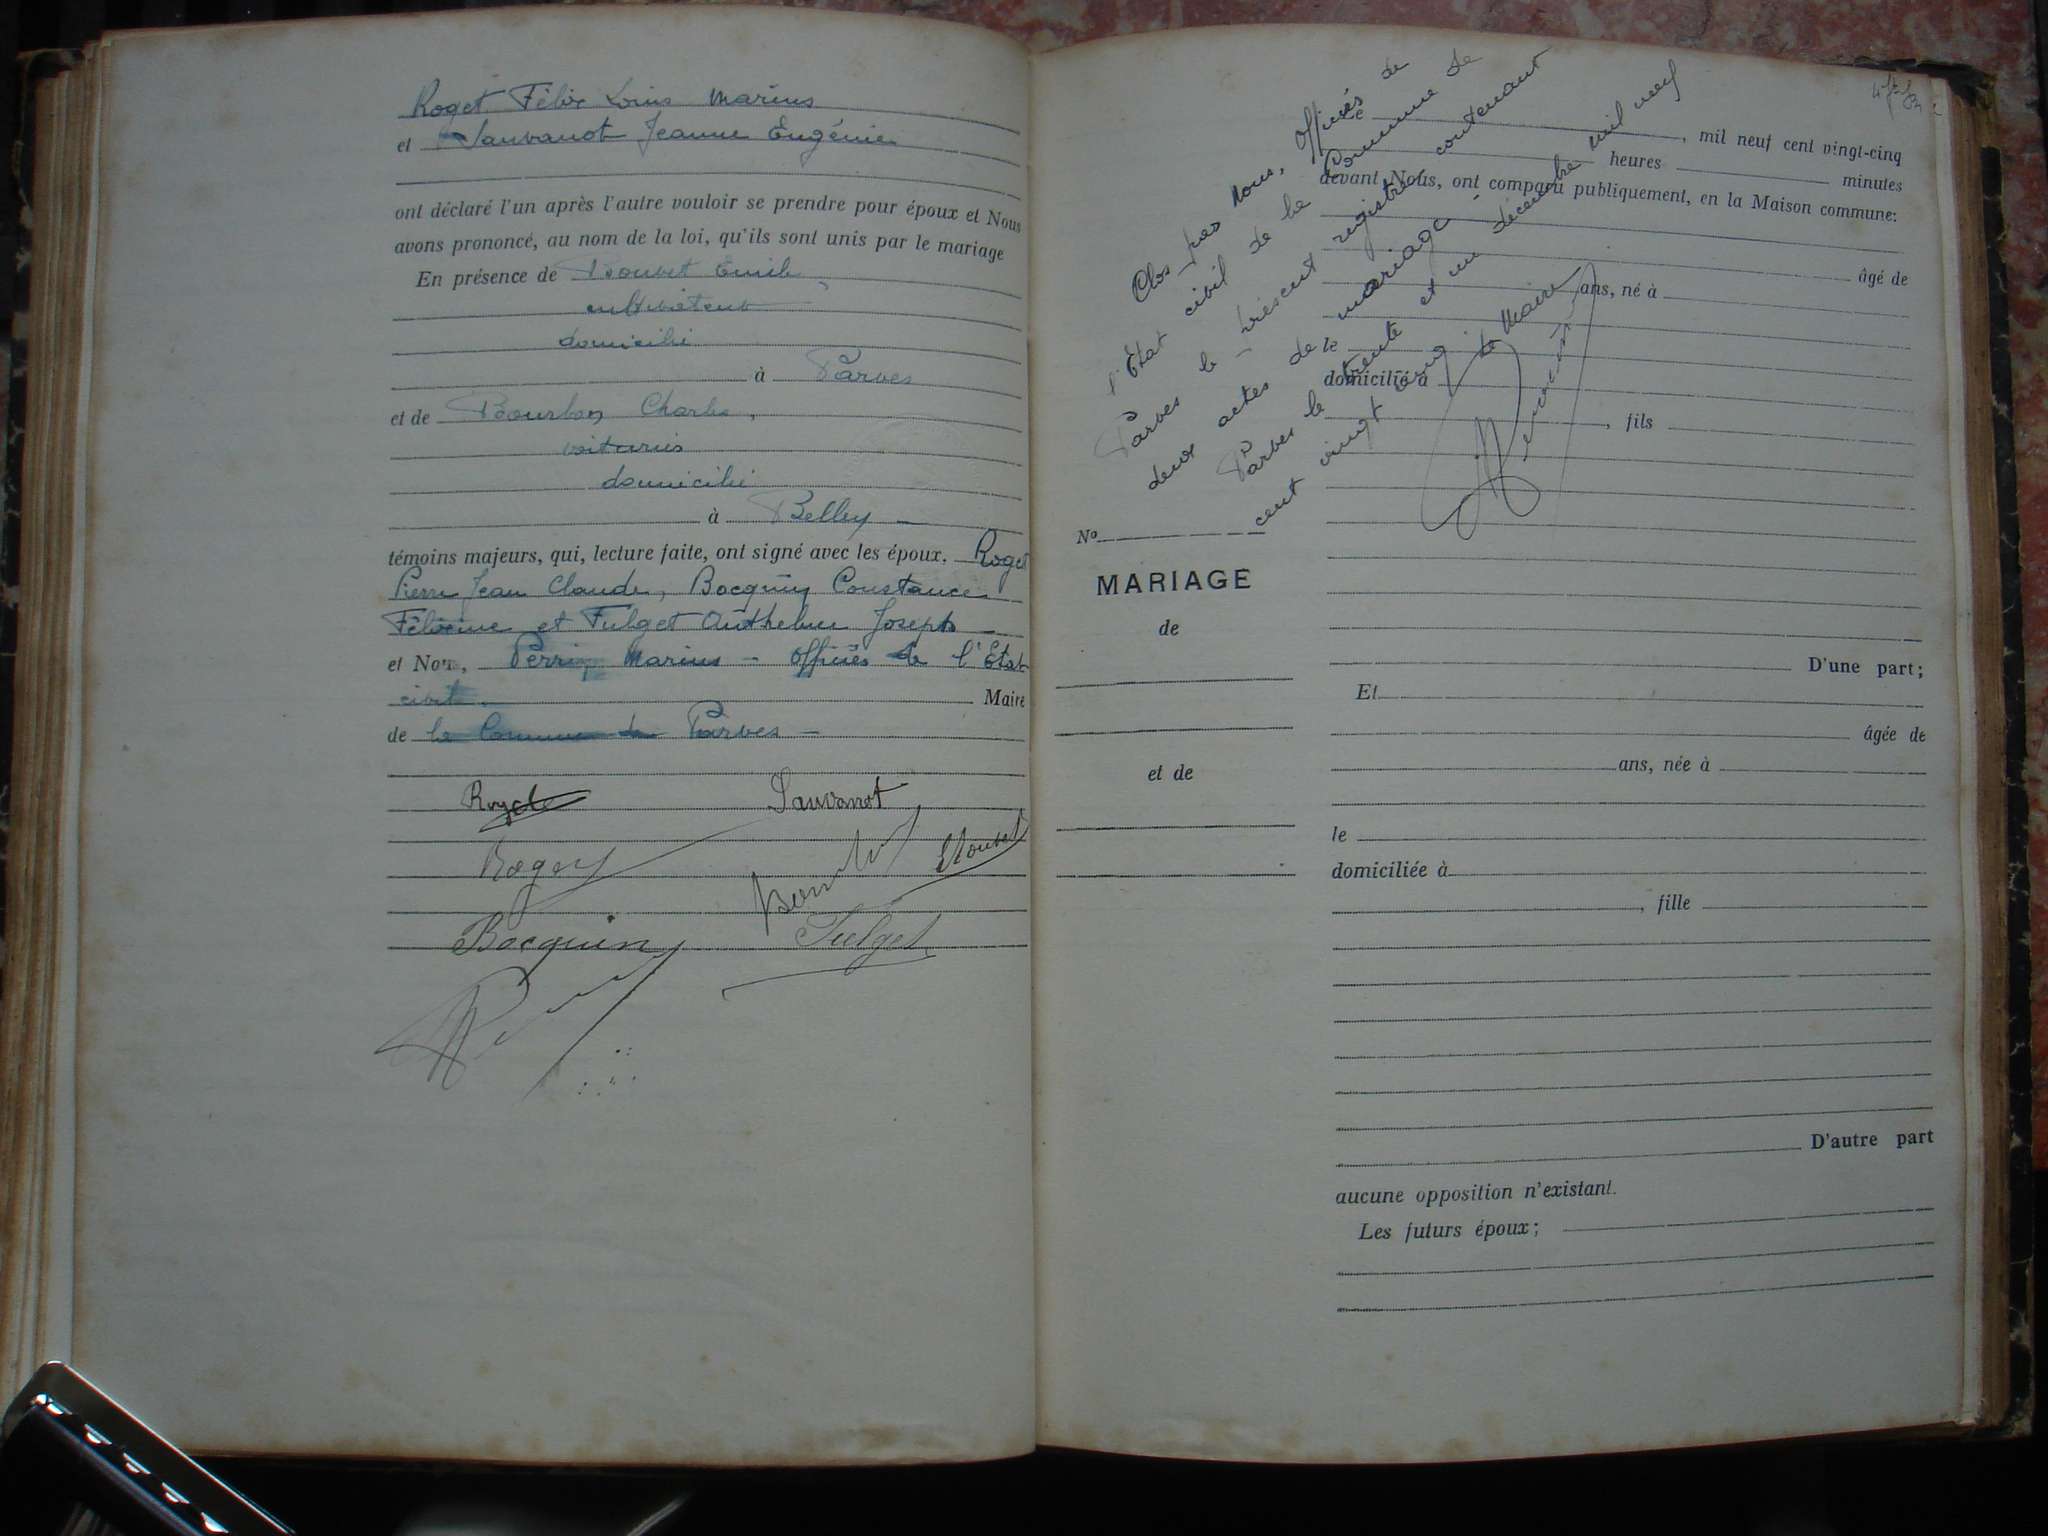 Roget Félix Louis Marius
et Sauvanot Jeanne Eugénie
ont déclaré l'un après l'autre vouloir se prendre pour époux et Nous
avons prononcé, au nom de la loi, qu'ils sont unis par le mariage
En présence de Bouvet Emile,
cultivateur
domicilié
à Parves
et de Bourbon Charles,
voiturier
domicilié
à Belley
témoins majeurs, qui, lecture faite, ont signé avec les époux, Roget
Pierre Jean Claude, Bocquin Constance
et Fulget Anthelme Joseph
et Nous, Perrin Marius - officier de l'Etat
civil. Maire
de la Commune de Parves -
Roget Sauvanot
Bouvet
Bocquin Fulget
Clos par nous, officier de
l'Etat civil de la Commune de
Parves le présent registre contenant
deux actes de mariage -
Parves le trente et un décembre mil neuf
cent vingt cinq le Maire
le , mil neuf cent vingt-cinq
heures minutes
devant Nous, ont comparu publiquement, en la Maison commune:
âgé de
ans, né à
le
domicilié à
, fils
No
MARIAGE
de
et de
D'une part;
Et
âgée de
ans, née à
le
domiciliée à
, fille
D'autre part
aucune opposition n'existant.
Les futurs époux;